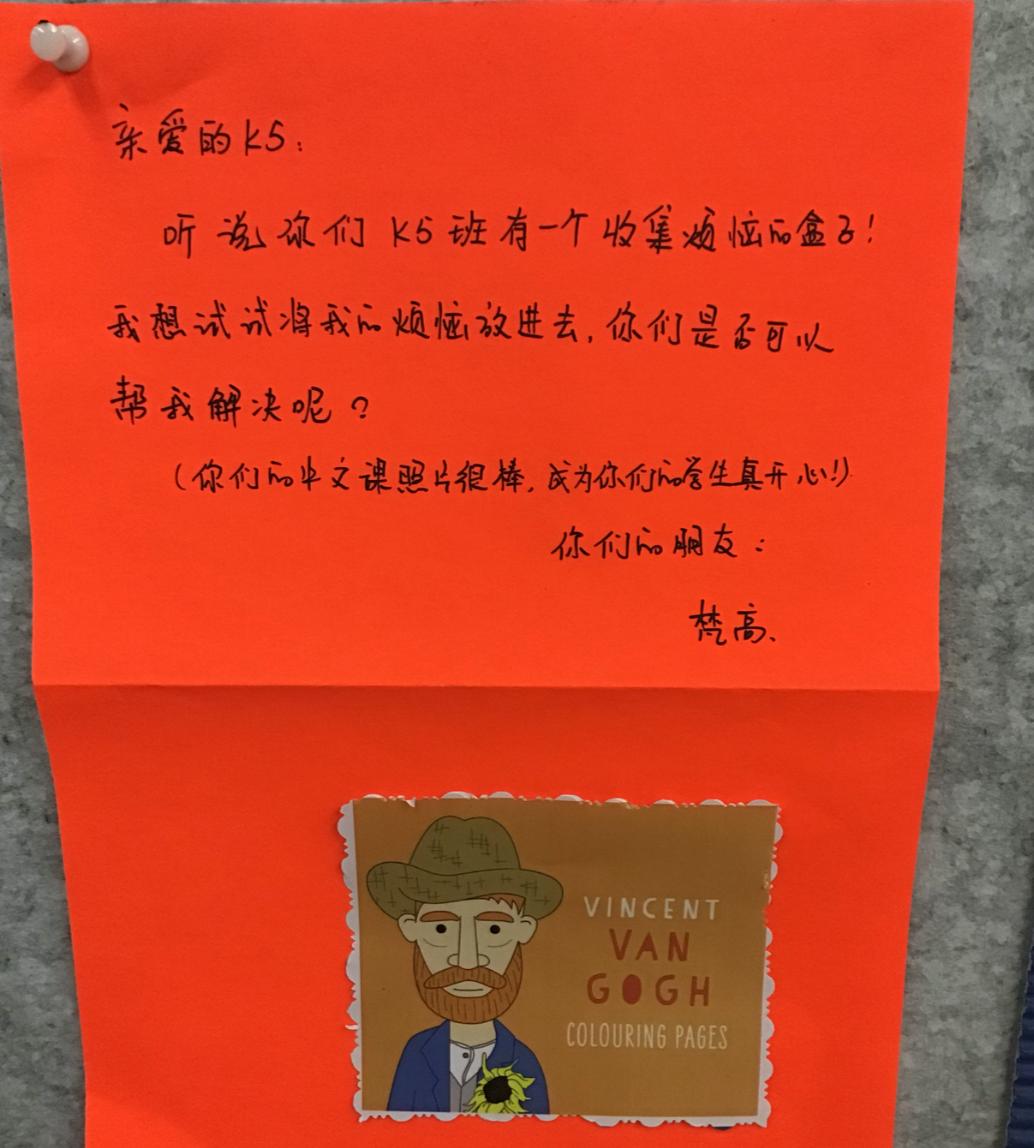 亲爱的K5:
听说你们K5班有一个收集烦恼的盒子!
我想试试将我的烦恼放进去,你们是否可以
帮我解决呢?
(你们的中文课照片很棒,成为你们的学生真开心!)
你们的朋友:
梵高.
VINCENT
VAN
GOGH
COLOURING PAGES